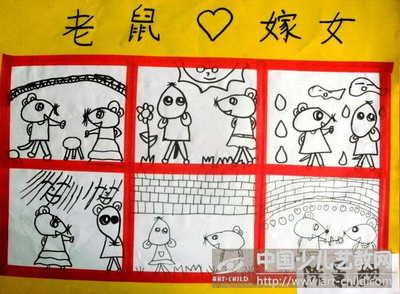 老鼠♡嫁女
中国少儿艺教网
ART-CHILD
www.art-child.com